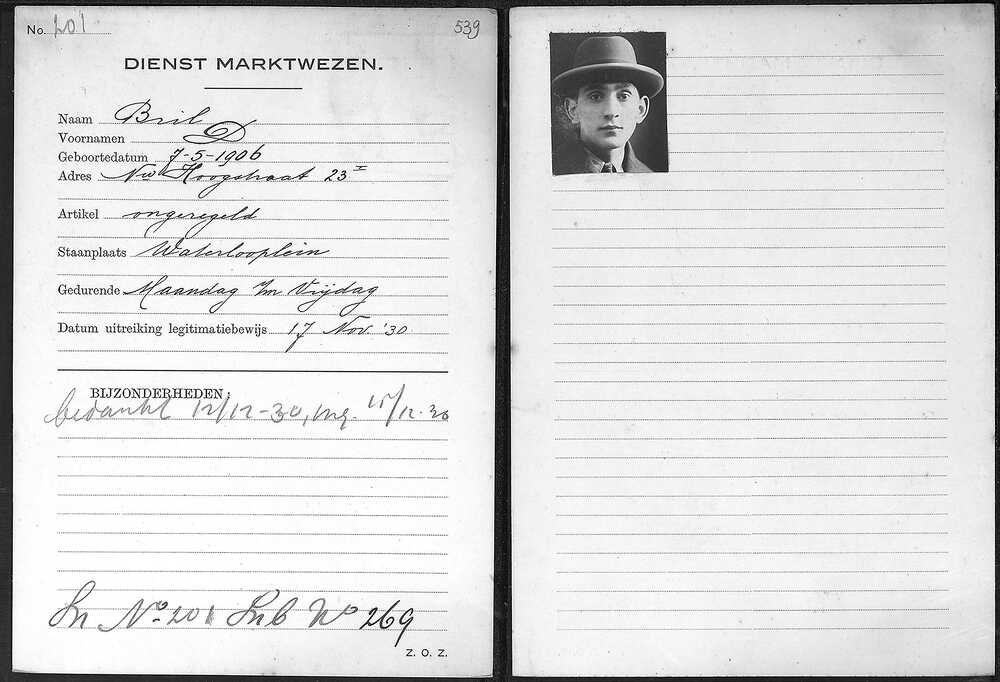 No. 201
539
DIENST MARKTWEZEN.
Naam Bril
Voornamen D
Geboortedatum 7-5-1906
Adres Nw Hoogstraat 23 I
Artikel ongeregeld
Staanplaats Waterlooplein
Gedurende Maandag t/m Vrijdag
Datum uitreiking legitimatiebewijs 17 Nov. '30
BIJZONDERHEDEN:
bedankt 12/12-30, ing. 15/12.30
No 201 No 269
Z. O. Z.